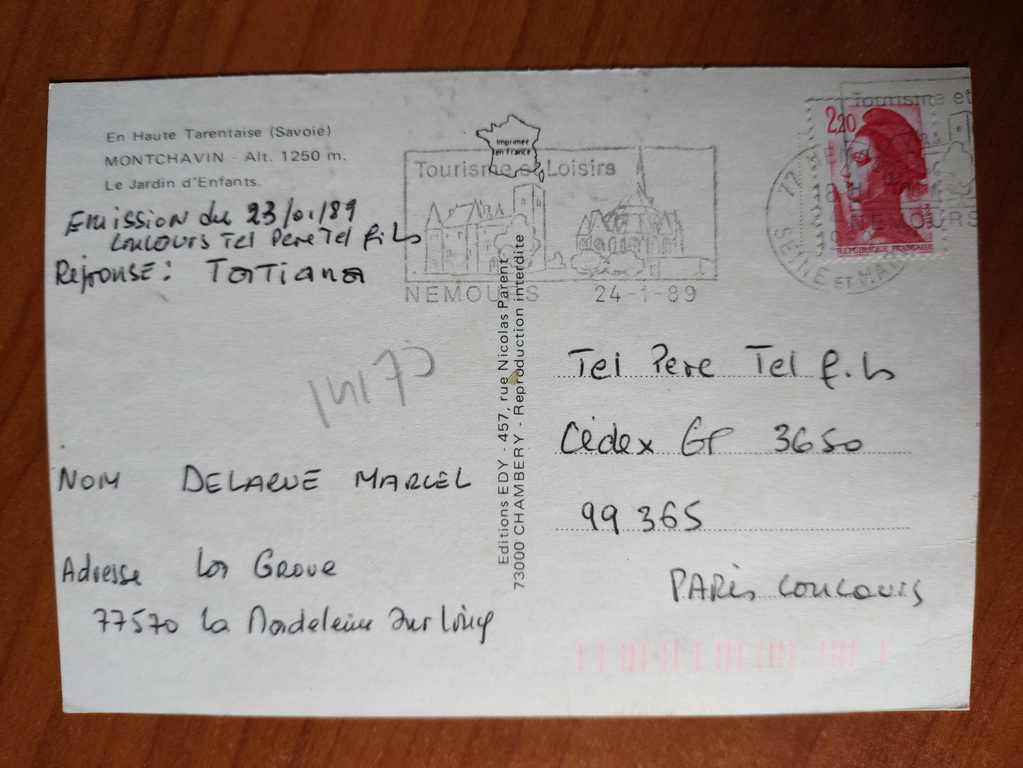 En Haute Tarentaise (Savoie)
MONTCHAVIN - Alt. 1250 m.
Le Jardin d'Enfants.
Emission du 23/01/89
Concours Tel Pere Tel fils
Reponse : Tatiana
NOM DELARUE MARCEL
Adresse
77570 La Madeleine sur Loing
Imprimer
en France
Tourisme et Loisirs
NEMOURS 24-1-89
Editions EDY - 457, rue Nicolas Parent
73000 CHAMBERY - Reproduction interdite
Tourisme et
2,20
77
NEMOURS
SEINE ET MARNE
REPUBLIQUE FRANCAISE
Tel Pere Tel fils
Cédex GP 3650
99 365
PARis Concours